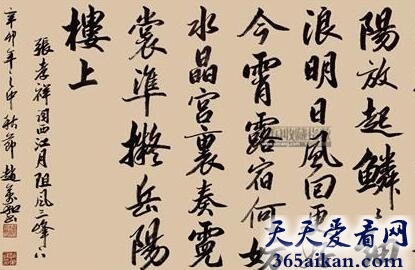 陽放起鱗
浪明日風回更
今霄露宿何妨
水晶宮裏奏霓
裳準擬岳陽
樓上
張孝祥詞西江月阻風三峰下
辛卯年之中秋節
天天爱看网
www.365aikan.com